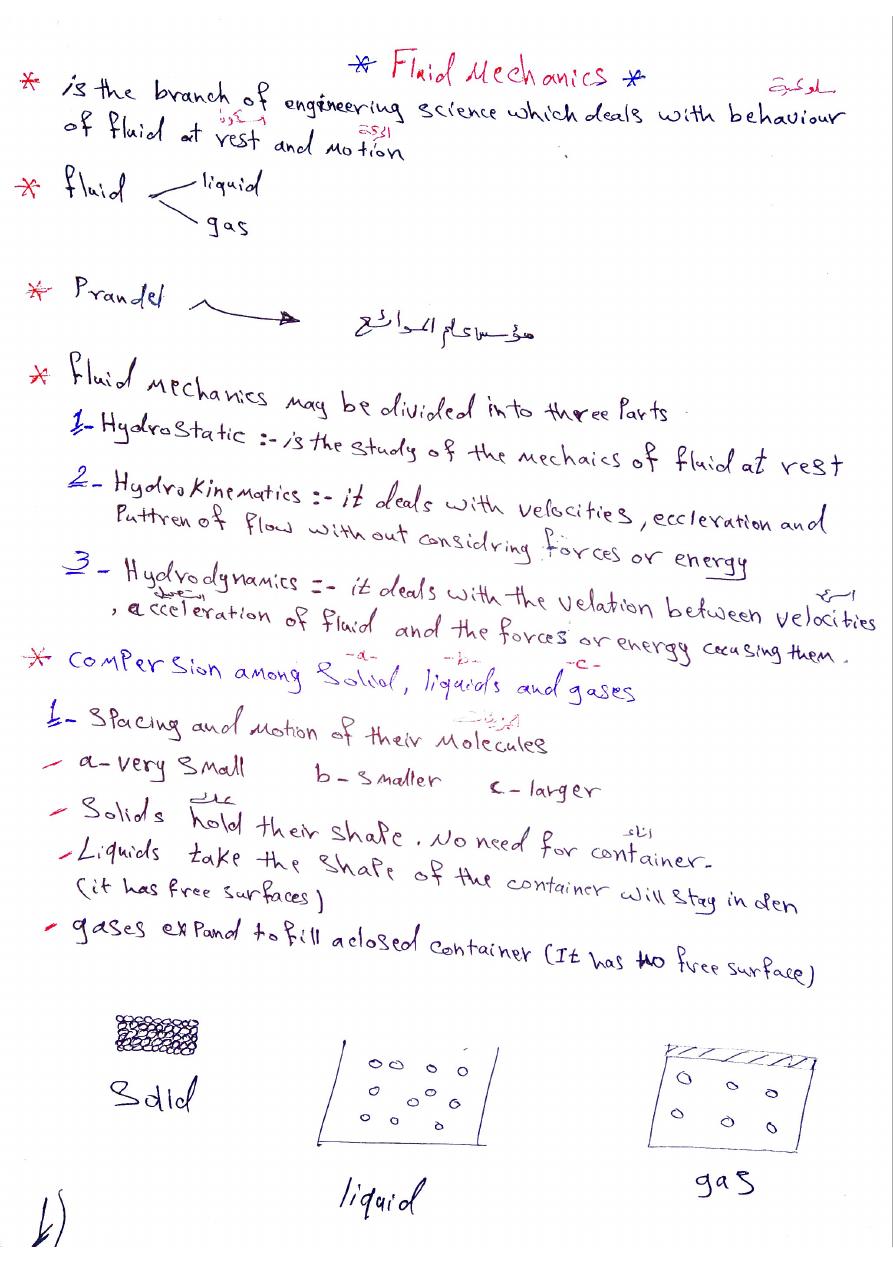 * Fluid Mechanics *
سلوكية
* is the branch of engineering science which deals with behaviour
السكون
الحركة
of fluid at rest and Motion
* fluid
liquid
gas
* Prandel
مؤسس علم الموائع
* fluid mechanics may be divided into three Parts.
1- Hydrostatic :- is the study of the mechaics of fluid at rest
2- Hydrokinematics :- it deals with velocities, eccleration and
Puttren of flow with out considring forces or energy
3- Hydrodynamics :- it deals with the velation between velocities
, acceleration of fluid and the forces or energy cacusing them.
-a- -b- -c-
* compersion among Solid, liquids and gases
الجزيئات
1- Spacing and Motion of their Molecules
- a- very small b- smaller c- larger
- Solids hold their shape. No need for container.
اناء
- Liquids take the shape of the container will stay in den
(it has free surfaces)
- gases expand to fill a closed container (It has no free surface)
Solid
liquid
gas